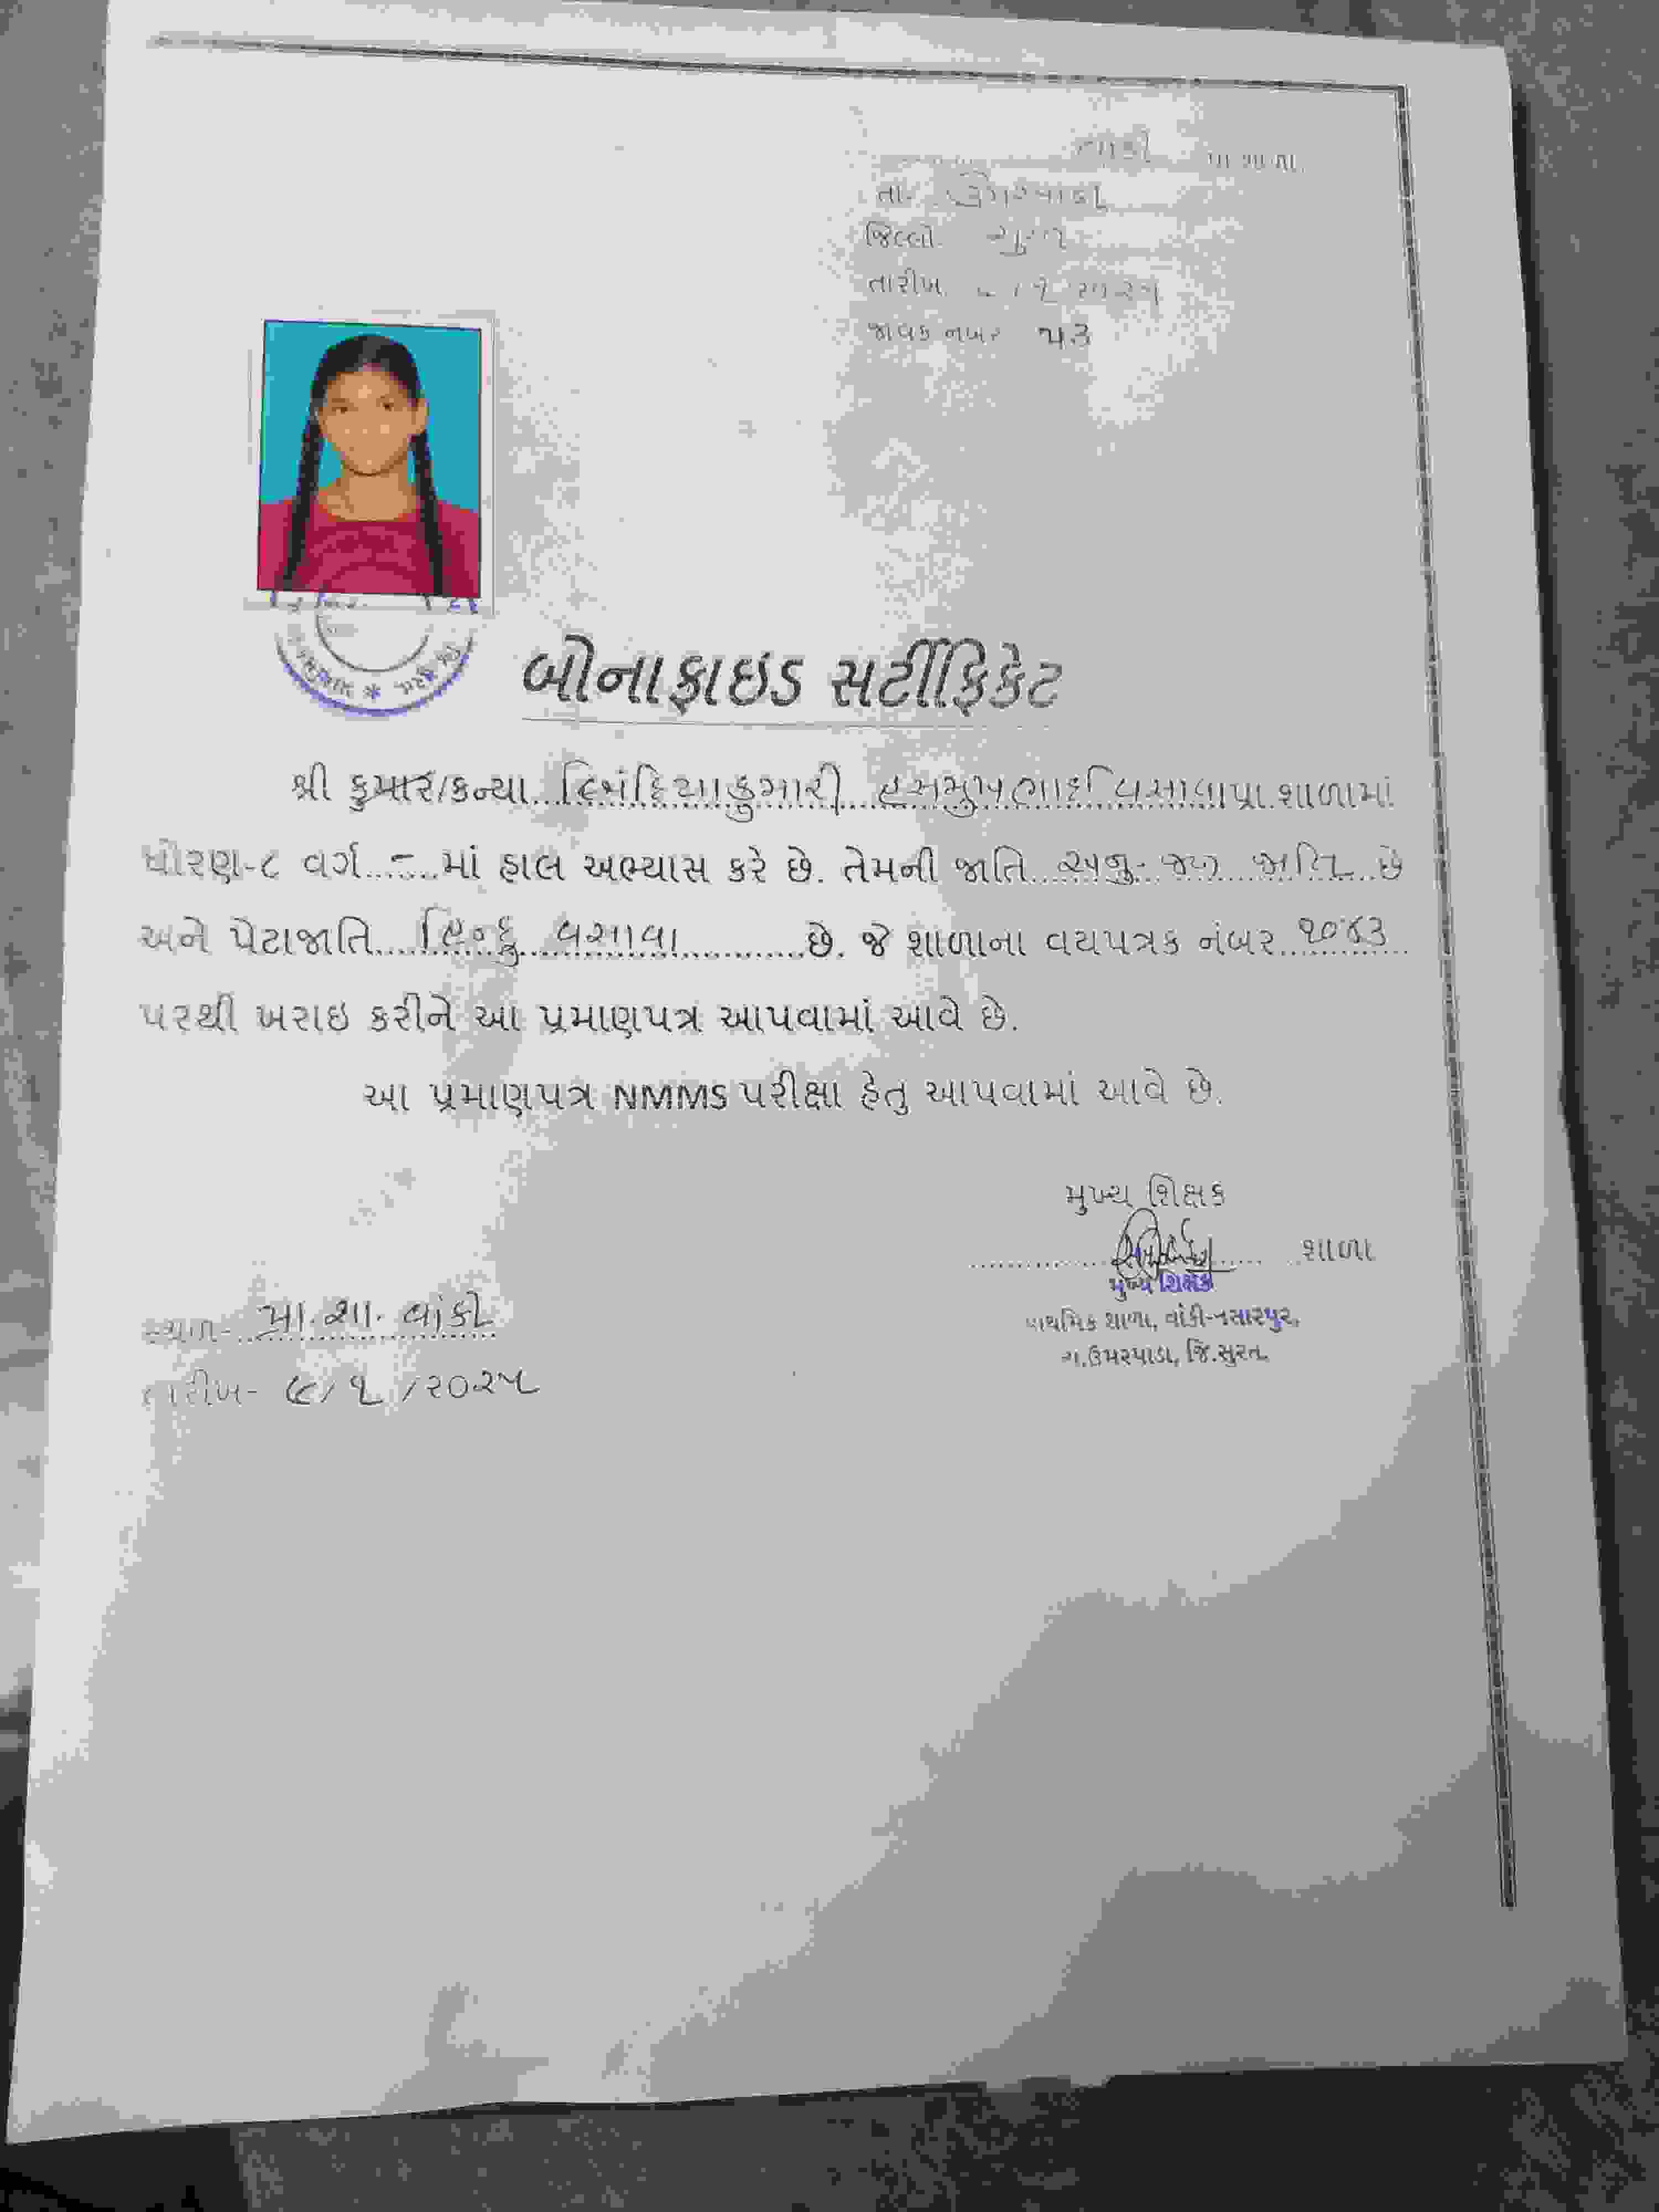 વાંકી પ્રા.શાળા.
તા. ઉમરપાડા
જિલ્લો. સુરત
તારીખ. /૧/૨૦૨૫
જાવક નંબર ૫૩
બોનાફાઇડ સર્ટીફિકેટ
શ્રી કુમાર/કન્યા.. હસમુખભાઈ વસાવા પ્રા.શાળામાં
ધોરણ-૮ વર્ગ......માં હાલ અભ્યાસ કરે છે. તેમની જાતિ...અનુ. જન જાતિ...છે
અને પેટાજાતિ....હિન્દુ વસાવા..........છે. જે શાળાના વયપત્રક નંબર..૧૦૪૩..
પરથી ખરાઇ કરીને આ પ્રમાણપત્ર આપવામાં આવે છે.
આ પ્રમાણપત્ર NMMS પરીક્ષા હેતુ આપવામાં આવે છે.
મુખ્ય શિક્ષક
શાળા
મુખ્ય શિક્ષક
પ્રાથમિક શાળા, વાંકી-નસારપુર,
તા.ઉમરપાડા, જિ.સુરત.
સ્થળ-..પ્રા.શા. વાંકી
તારીખ- ૯/૧/૨૦૨૫